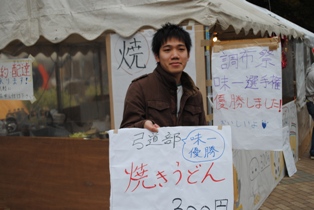 焼
調布祭
味一選手権
優勝しました!
弓道部
味一
優勝
焼きうどん
300円